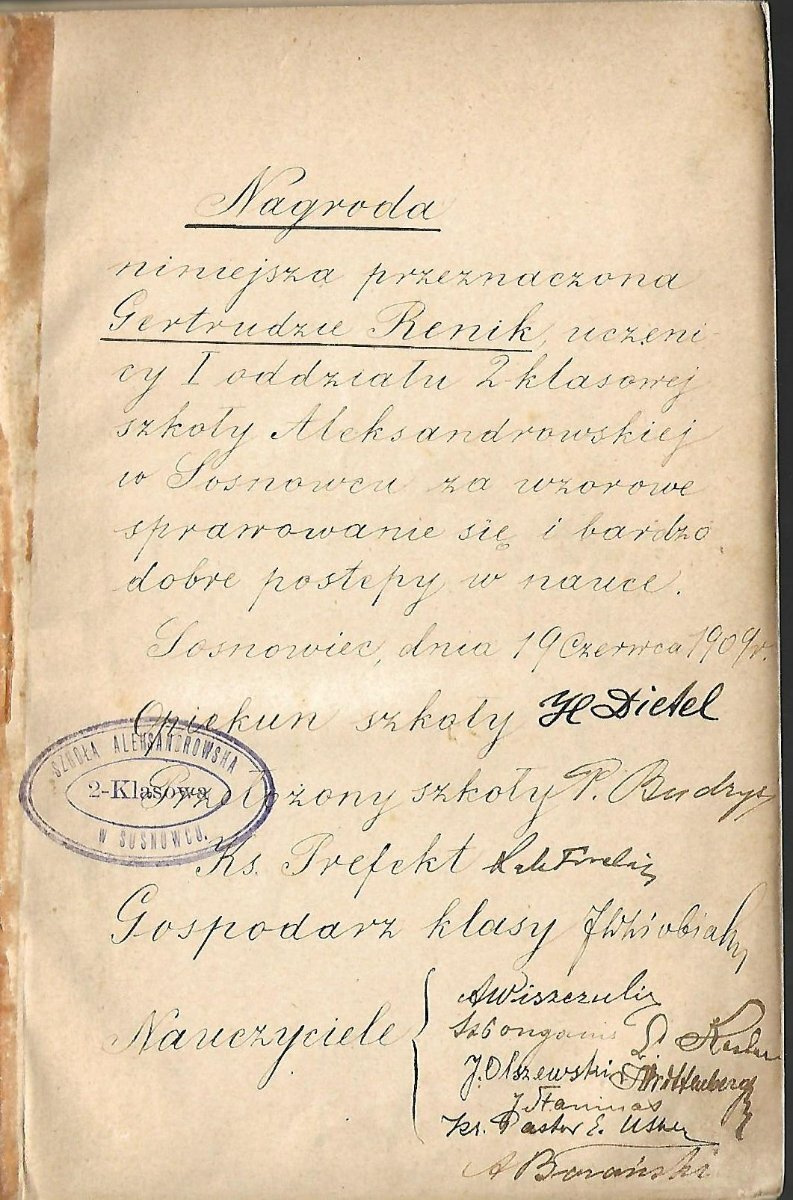 Nagroda
niniejsza przeznaczona
Gertrudzie Renik, uczeni-
cy I oddziału 2-klasowej
szkoły Aleksandrowskiej
w Sosnowcu za wzorowe
sprawowanie się i bardzo
dobre postępy w nauce.
Sosnowiec, dnia 19 Czerwca 1909 r.
Opiekun szkoły H Dietel
SZKOŁA ALEKSANDROWSKA
2-Klasowa
W SOSNOWCU.
Przełożony szkoły P. Budrys
Ks. Prefekt
Gospodarz klasy
Nauczyciele
J. Olszewski
Wittenberg
Ks. Pastor E.
A Borański